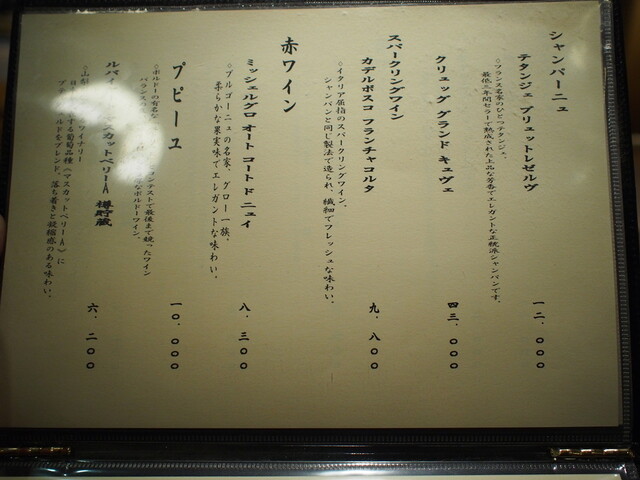 シャンパーニュ
テタンジェ ブリュットレゼルヴ 一二、〇〇〇
◇フランス名家のひとつテタンジェ。
最低三年間セラーで熟成された上品な芳香でエレガントな正統派シャンパンです。
クリュッグ グランド キュヴェ 四三、〇〇〇
スパークリングワイン
カデルボスコ フランチャコルタ 九、八〇〇
◇イタリア屈指のスパークリングワイン。
シャンパンと同じ製法で造られ、繊細でフレッシュな味わい。
赤ワイン
ミッシェルグロ オート コート ド ニュイ 八、三〇〇
◇ブルゴーニュの名家、グロ一族。
柔らかな果実味でエレガントな味わい。
プピーユ 一〇、〇〇〇
◇ボルドーの有名な
テストで最後まで競ったワイン
バランス
なボルドーワイン。
ルバイ
スカットベリーA 樽貯蔵 六、二〇〇
◇山梨
ワイナリー
する葡萄品種(マスカットベリーA)に
ルドをブレンド。落ち着きと凝縮感のある味わい。